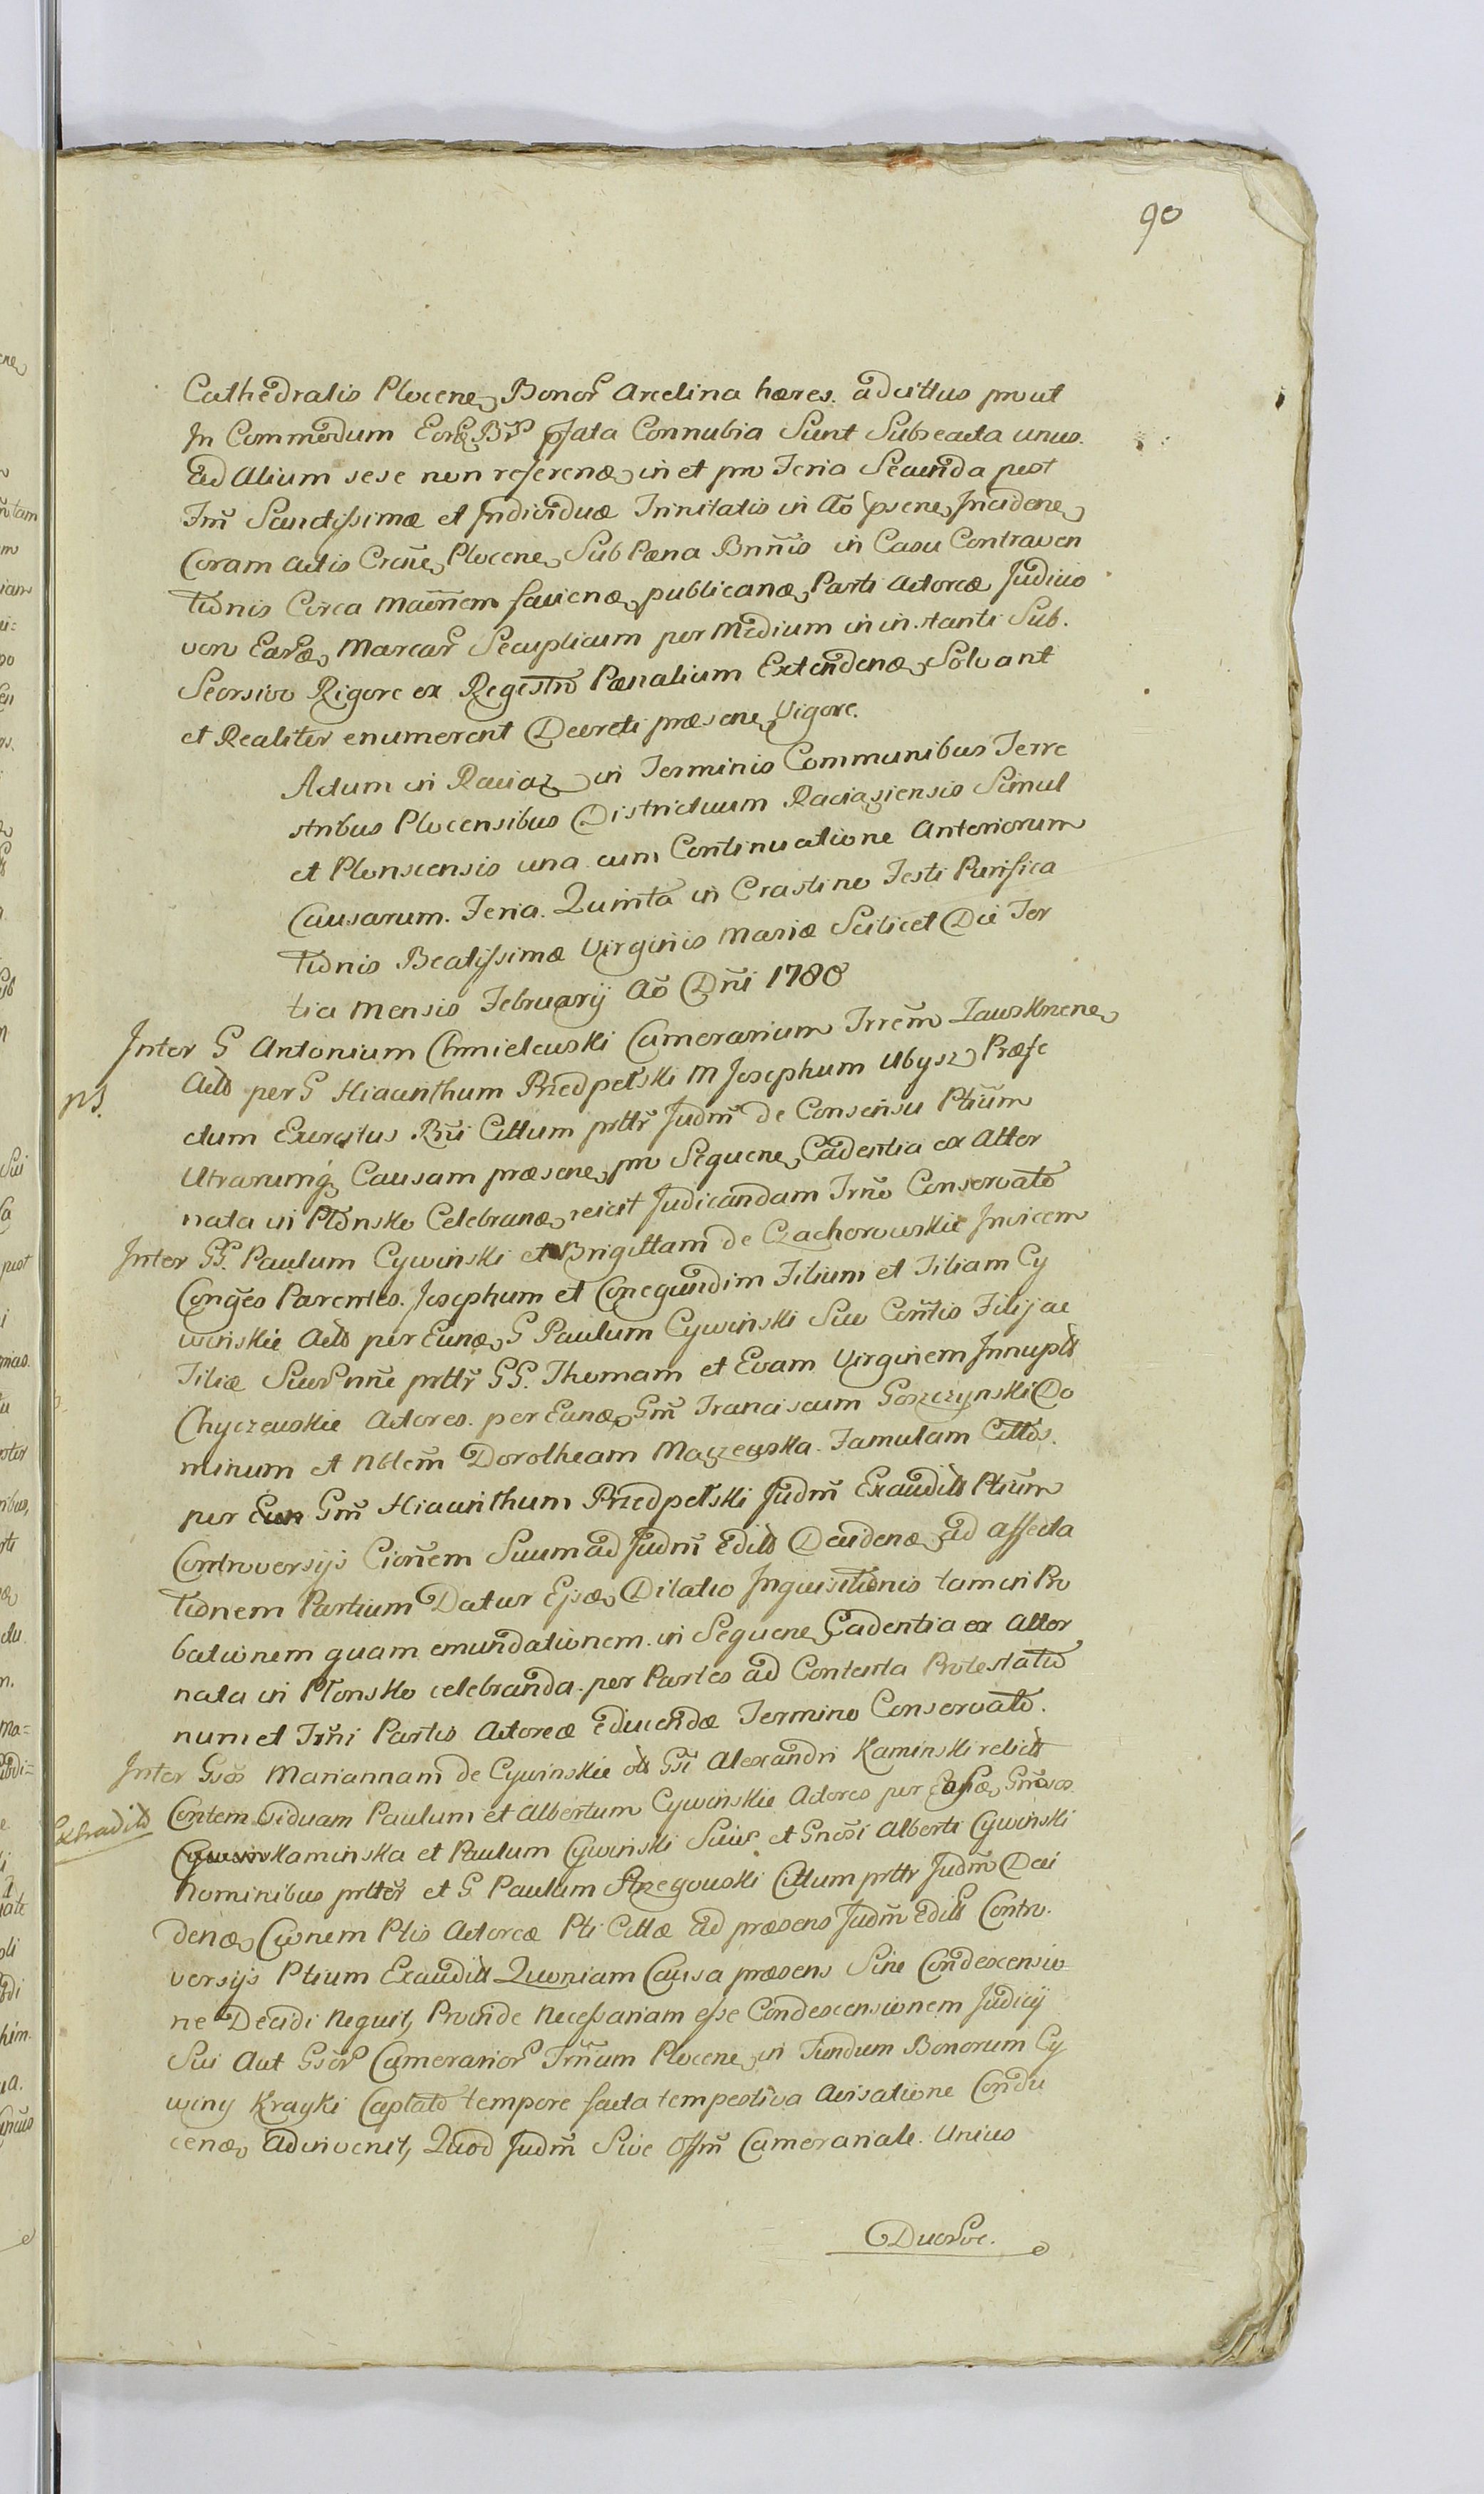 90
Cathedralis Plocen̄ Bonor̄ Arcelina hæres. adcittus prout
In Commodum Eorg̃ Br̃ pfata Connubia Sunt Subsecuta unus.
Ad Alium sese non referenæ in et pro Feria Secunda post
Fm̃ Sanctissimæ et Individuæ Trinitatis in Ao p̃sene Incidene
Coram Actis Crẽne Plocene Sub Pæna Bnñis in Casu Contraven
tionis Circa maõnem facienæ publicanæ Parti Actoreæ Judicio
vero Marcar̃ Secuplicium per Medium in instanti Sub.
Seorsivo Rigore ex Regestro Pænalium Extendenæ Solvant
et Realiter enumerent Decreti præsene Vigore.
Actum in Raciąz in Terminis Communibus Terre
stribus Plocensibus Districtuum Raciąziensis Simul
et Plonscensis una cum Continuatione Anteriorum
Causarum. Feria Quinta in Crastino Festi Purifica
tionis Beatissimæ Virginis Mariæ Scilicet Die Ter
tia Mensis Februarij Aõ Dñi 1780
Inter G Antonium Chmielewski Camerarium Trrem̃ Zawskrzene
ns.
Acto per G Hiacinthum Przedpełski M Josephum Ubysz Præfe
ctum Exercitus Rñi Cittum prttr̃ Judm̃ de Consensu Ptiũm
Utrarumq; Causam præsene pro Sequene Cadentia ex Alter
nata in Płonsko Celebranæ reicit Judicandam Trño Conservato
Inter GG. Paulum Cywinski et Brigittam de Czachorowskie Invicem
Conges Parentes. Josephum et Conegundim Filium et Filiam Cy
winskie Acto per Eunæ G Paulum Cywinski Suo Contis Filij ac
Filiæ Suor̃ nñe prttr̃ GG. Thomam et Evam Virginem Innupto
Chyczewskie Actores. per Eunæ Gm̃ Franciscum Goszczynski Do
minum et Nblem̃ Dorotheam Maczewska Famulam Cittos.
per Eun Gm̃ Hiacinthum Przedpełski Judm̃ Exauditt Ptiũm
Controversijs Cioñem Suum ad Judm̃ Edito Decidenæ ad affecta
tionem Partium Datur Ejsæ Dilatio Inquisitionis tam in Pro
bationem quam emundationem in Sequene Cadentia ex Alter
nata in Płonsko celebranda per Partes ad Contenta Protestatio
num et Trñi Partis Actoreæ Educendæ Termino Conservato.
Inter Gsõs Mariannam de Cywinskie oło Gsi Alexandri Kaminski relicto
Extradito
Contem Viduam Paulum et Albertum Cywinskie Actores per Gm̃sos
Kaminska et Paulum Cywinski Suis et Gnosi Alberti Cywinski
Nominibus prttr̃ et G Paulum Strzegowski Cittum prttr Judm̃ Deci
denæ Cionem Ptis Actoreæ Pti Cittæ Ad præsens Judm̃ Edito Contro.
versijs Ptium Exauditt Quoniam Causa præsens Sine Condescensio
ne Decidi Nequit, Proinde Necessariam esse Condescensionem Judicij
Sui Aut Gsõr̃ Camerarior̃ Trñum Plocene in Fundum Bonorum Cy
winy Krayki Captato tempore facta tempestiva Avisatione Condu
cenæ Adinvenit, Quod Judm̃ Sive Offm̃ Camerariale Unius
Duorve.